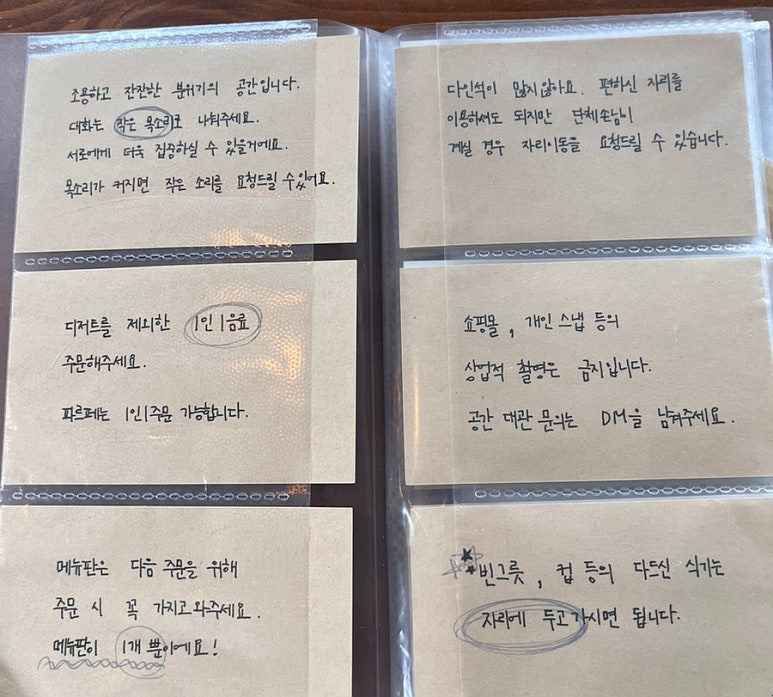 조용하고 잔잔한 분위기의 공간입니다.
대화는 작은 목소리로 나눠주세요.
서로에게 더욱 집중하실 수 있을거에요.
목소리가 커지면 작은 소리를 요청드릴 수 있어요.
디저트를 제외한 1인 1음료
주문해주세요.
파르페는 1인 1주문 가능합니다.
메뉴판은 다음 주문을 위해
주문 시 꼭 가지고 와주세요.
메뉴판이 1개 뿐이에요!
다인석이 많지 않아요. 편하신 자리를
이용하셔도 되지만 단체손님이
계실 경우 자리이동을 요청드릴 수 있습니다.
쇼핑몰, 개인 스냅 등의
상업적 촬영은 금지입니다.
공간 대관 문의는 DM을 남겨주세요.
빈그릇, 컵 등의 다드신 식기는
자리에 두고 가시면 됩니다.